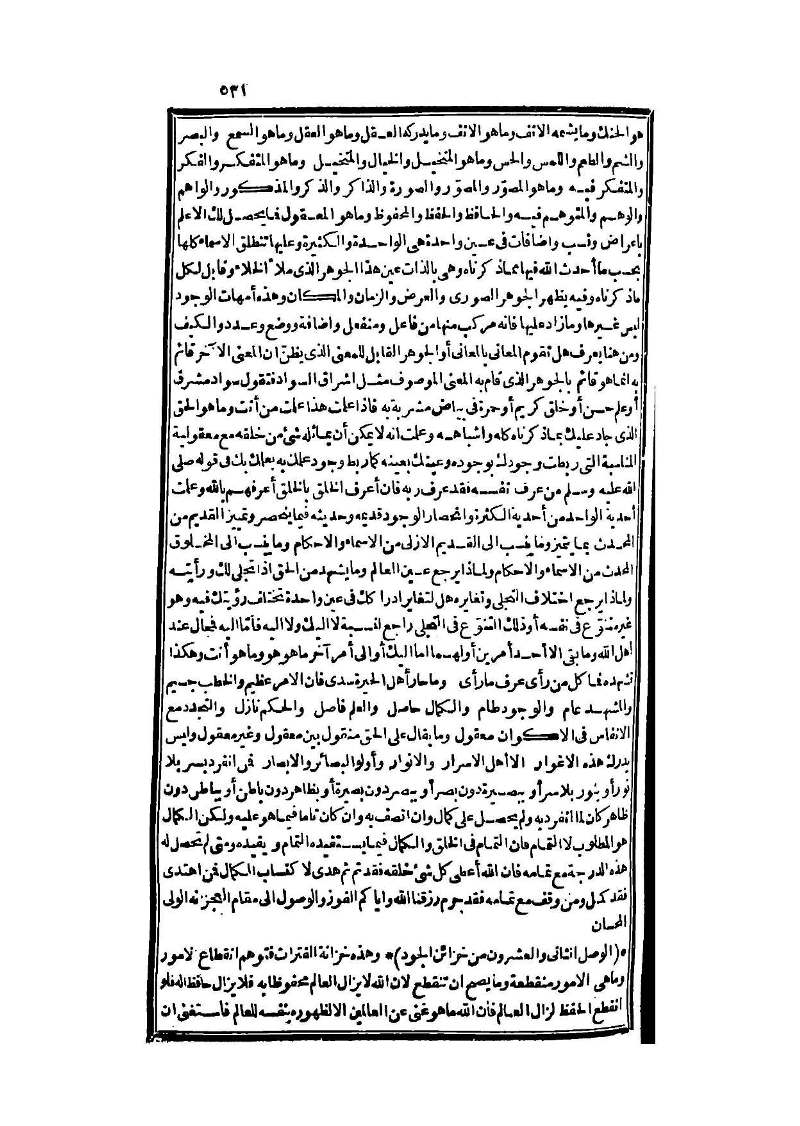 ٥٣١
هو الحنك وما يشمه الانف وما هو الانف وما يدركه العقل وما هو العقل وما هو السمع والبصر
والشم والطعم واللمس والحس وما هو المتخيل والخيال والمتخيل وما هو المتفكر والفكر
والمتفكر فيه وما هو المصوّر والمصوّر والصورة والذاكر والذكر والمذكور والواهم
والوهم والمتوهم فيه والحافظ والحفظ والمحفوظ وما هو المعقول فما يحصل لك الا علم
باعراض ونسب واضافات فى عين واحدة هى الواحدة والكثيرة وعليها تنطلق الاسماء كلها
بحسب ما أحدث الله فيها مما ذكرناه وهى بالذات عين هذا الجوهر الذى ملأ الخلاء وقابل لكل
ما ذكرناه وفيه يظهر الجوهر الصورى والعرض والزمان والمكان وهذه أمهات الوجود
ليس غيرها وما زاد عليها فانه مركب منها من فاعل ومنفعل واضافة ووضع وعدد والكيف
ومن هنا يعرف هل تقوم المعانى بالمعانى أو الجوهر القابل للمعنى الذى يظنّ ان المعنى الآخر قائم
به انما هو قائم بالجوهر الذى قام به المعنى الموصوف مثل اشراق السواد فتقول سواد مشرق
أو علم حسن أو خلق كريم أو حمرة فى بياض مشربة به فاذا علمت هذا علمت من أنت وما هو الحق
الذى جاد عليك بما ذكرناه كله واشباهه وعلمت انه لا يمكن أن يماثله شئ من خلقه مع معقولية
المناسبة التى ربطت وجودك بوجوده وعينك بعينه كما ربط وجود علمك به بعلمك بك فى قوله صلى
الله عليه وسلم من عرف نفسه فقد عرف ربه فان أعرف الخلق بالخلق أعرفهم بالله وعلمت
أحدية الواحد من أحدية الكثرة وانحصار الوجود قديمه وحديثه فيما ينحصر وتميز القديم من
المحدث بما يتميز وما ينسب الى القديم الازلى من الاسماء والاحكام وما ينسب الى المخلوق
المحدث من الاسماء والاحكام ولماذا يرجع عين العالم وما يشهد من الحق اذا تجلى لك ورأيته
ولماذا يرجع اختلاف التجلى وتغايره هل لتغاير ادراكك فى عين واحدة تختلف رؤيتك فيه وهو
غير متنوّع فى نفسه أو ذلك التنوّع فى التجلى راجع لنسبة لا اليك ولا اليه فأمّا اليه فمحال عند
أهل الله وما بقى الا أحد أمرين أو لهما اما اليك أو الى أمر آخر ما هو هو وما هو أنت وهكذا
تشهده فما كل من رأى عرف ما رأى وما حار أهل الحيرة سدى فان الامر عظيم والخطب جسيم
والمشهد عام والوجود طام والكمال حاصل والعلم فاصل والحكم نازل والتجدد مع
الانفاس فى الاكوان معقول وما يقال على الحق منقول بين معقول وغير معقول وليس
يدرك هذه الاغوار الا أهل الاسرار والانوار وأولوا البصائر والابصار فمن انفرد بسر بلا
نور أو بنور بلا سر أو ببصيرة دون بصر أو ببصر دون بصيرة أو بظاهر دون باطن أو بباطن دون
ظاهر كان لما انفرد به ولم يحصل على كمال وان اتصف به وان كان تاما فيما هو عليه ولكن الكمال
هو المطلوب لا التمام فان التمام فى الخلق والكمال فيما يستفيده التمام و يفيده ومتى لم تحصل له
هذه الدرجة مع تمامه فان الله أعطى كل شئ خلقه فقد تم ثم هدى لا كتساب الكمال فمن اهتدى
فقد كمل ومن وقف مع تمامه فقد حرم رزقنا الله واياكم الفوز والوصول الى مقام العجز انه الولى
المحسان
*(الوصل الثانى والعشرون من خزائن الجود)* وهذه خزانة الفترات فتوهم انقطاع لامور
وما هى الامور منقطعة وما يصح ان تنقطع لان الله لا يزال العالم محفوظا به فلا يزال حافظا له فلو
انقطع الحفظ لزال العالم فان الله ما هو غنى عن العالمين الا لظهوره بنفسه للعالم فاستغنى ان